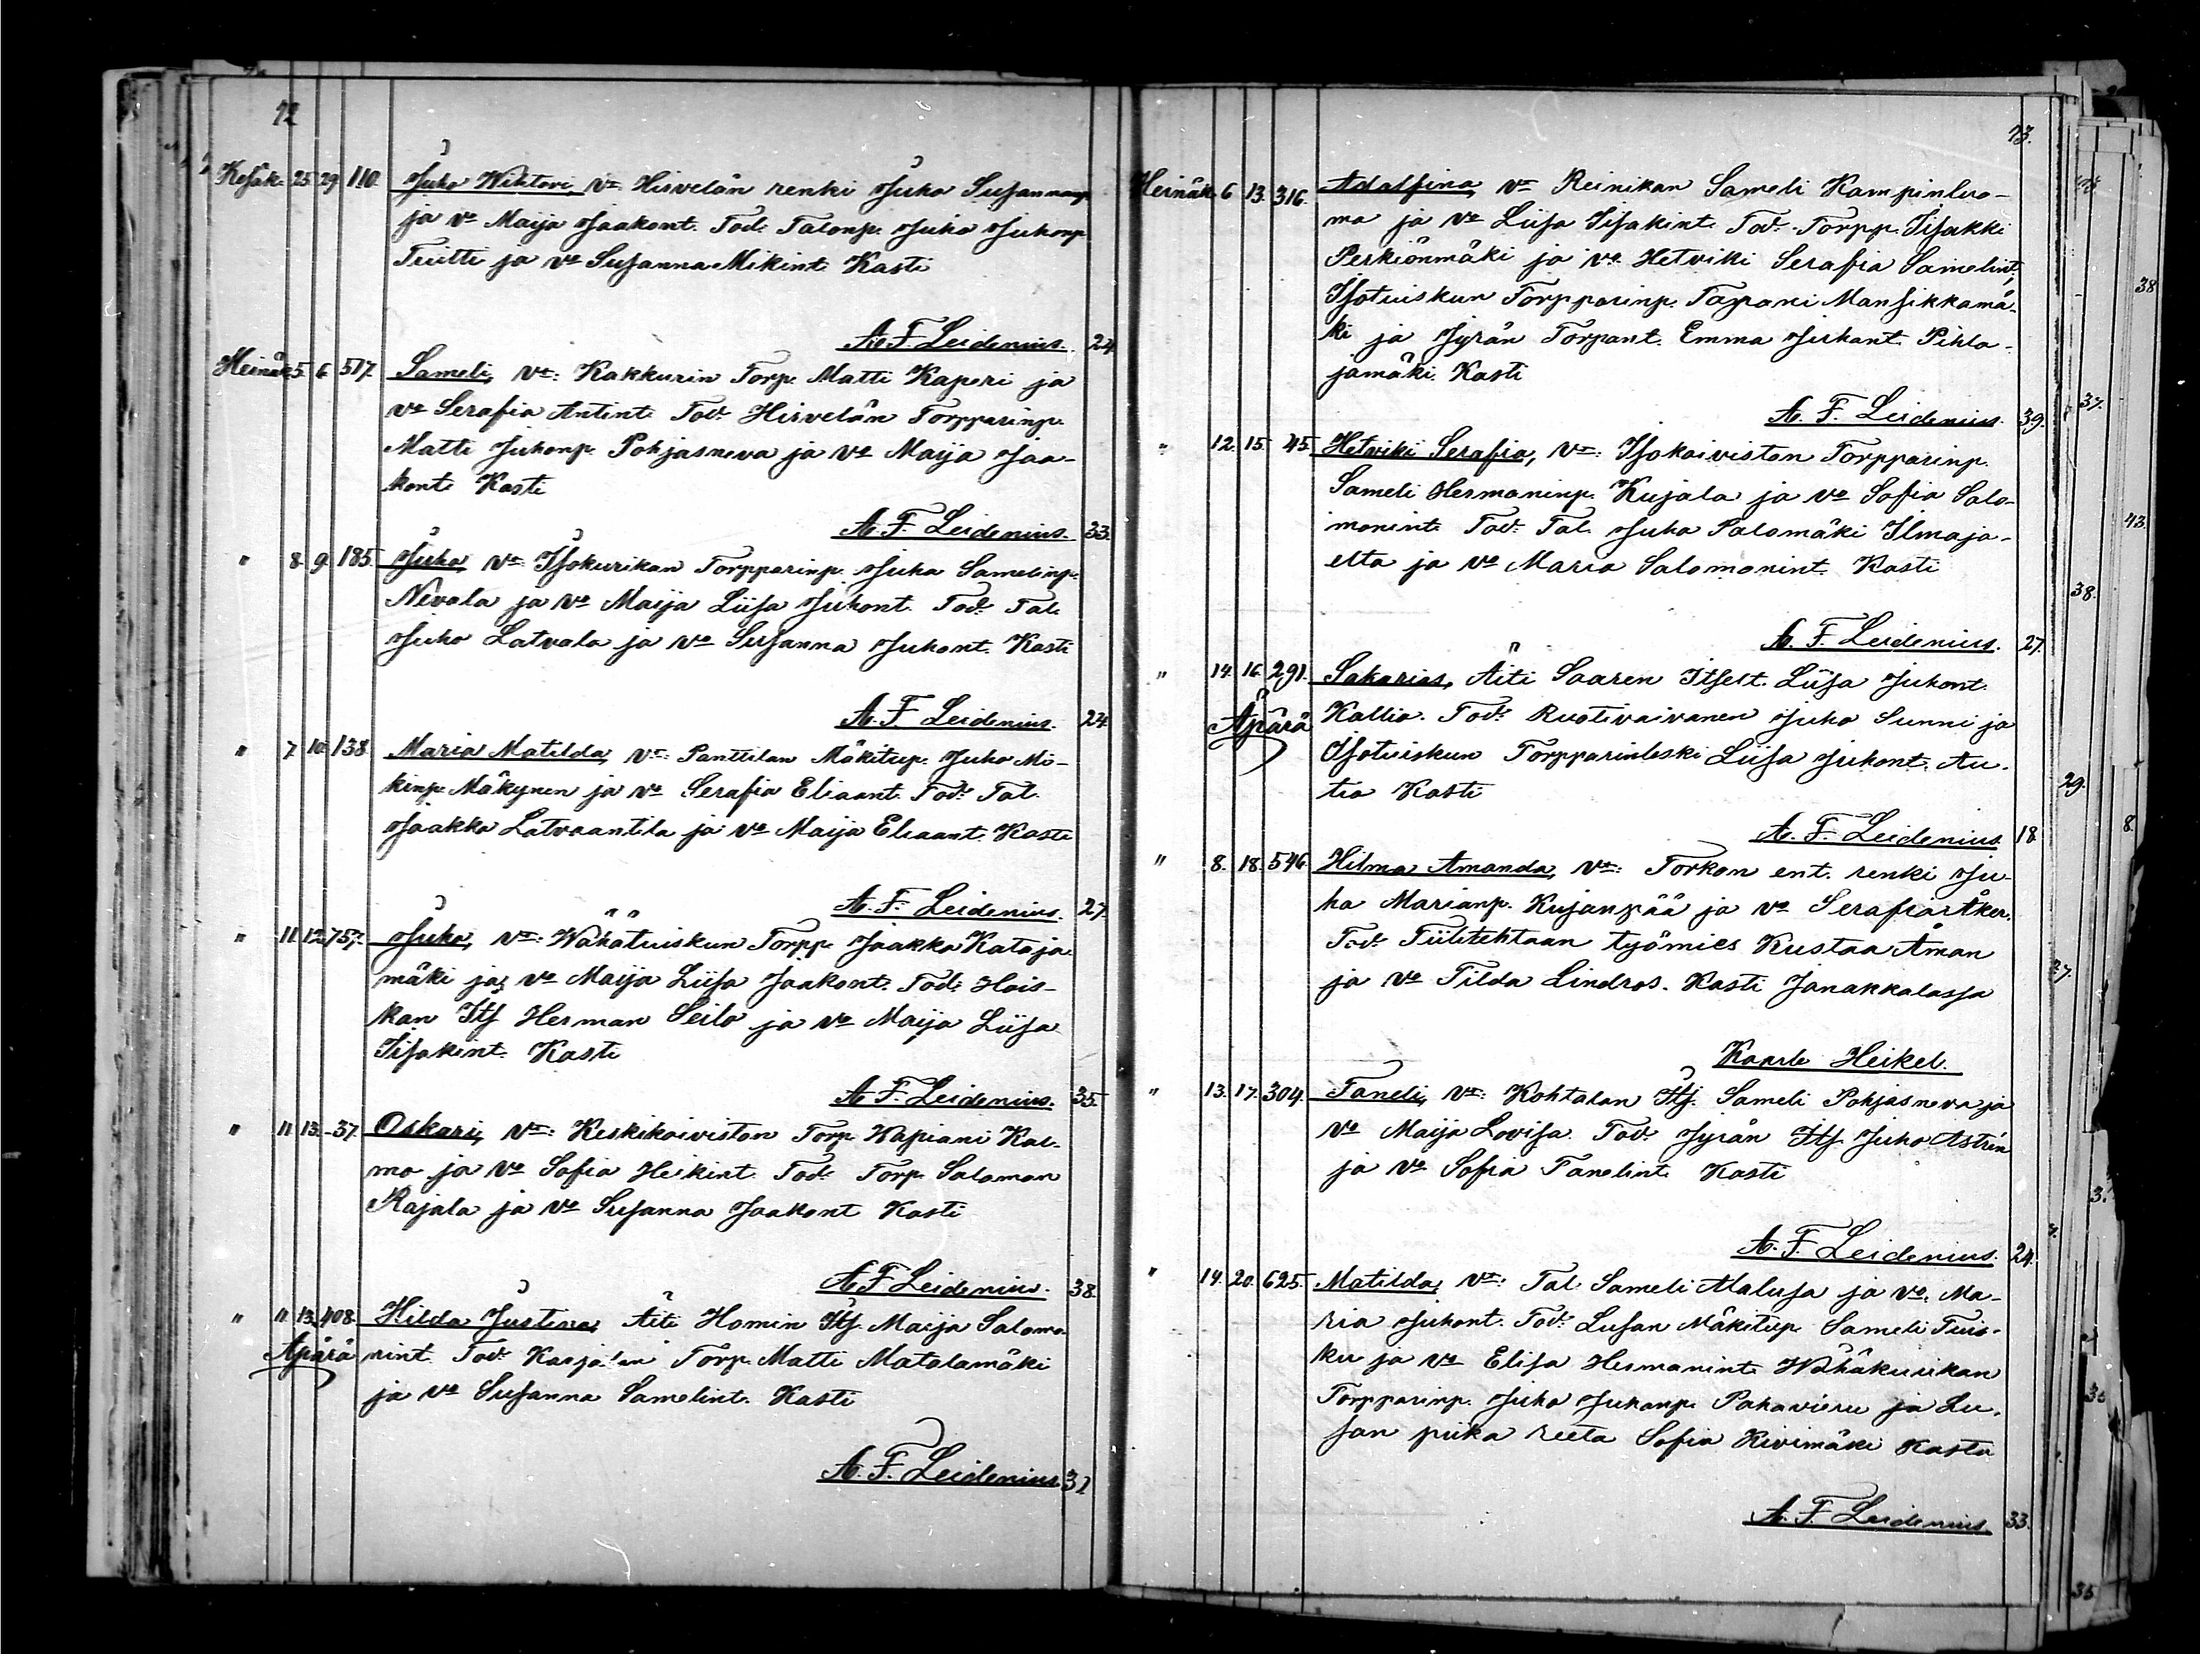 72
Kesäk. 25. 29. 110. Juho Wihtori, v:t Hirvelän renki Juho Susannanp.
ja v:o Maija Jaakont. Tod: Talonp. Juho Juhonp.
Tiitti ja v:o Susanna Mikint. Kasti
A. F. Leidenius. 24
Heinäk. 5. 6. 517. Sameli, v:t: Kakkurin Torp. Matti Kaperi ja
v:o Serafia Antint. Tod: Hirvelän Torpparinp.
Matti Juhonp. Pohjasneva ja v:o Maija Jaa-
kont. Kasti
A. F. Leidenius. 33.
" 8. 9. 185. Juho, v:t: Isokurikan Torpparinp. Juho Samelinp.
Nivala ja v:o Maija Liisa Juhont. Tod: Tal.
Juho Latvala ja v:o Susanna Juhont. Kasti
A. F. Leidenius. 24.
" 7. 10. 138. Maria Matilda, v:t: Panttilan Mäkitup. Juho Mi-
kinp. Mäkynen ja v:o Serafia Eliaant. Tod: Tal.
Jaakko Latvaantila ja v:o Maija Eliaant. Kasti
A. F. Leidenius. 27.
" 11. 12. 757. Juho, v:t: Wähätuiskun Torpp. Jaakko Kataja-
mäki ja v:o Maija Liisa Jaakont. Tod: Hois-
kan Its. Herman Seilo ja v:o Maija Liisa
Iisakint. Kasti
A. F. Leidenius. 35.
" 11. 13. 37. Oskari, v:t: Keskikoiviston Torp. Kapiani Kal-
mo ja v:o Sofia Heikint. Tod: Torp. Salomon
Rajala ja v:o Susanna Jaakont. Kasti
A. F. Leidenius. 38.
" 11. 13. 408. Hilda Justina, Äiti Homin Its. Maija Salomo-
Äpärä nint. Tod: Karjalan Torp. Matti Matalamäki
ja v:o Susanna Samelint. Kasti
A. F. Leidenius. 32
73.
Heinäk. 6. 13. 316. Adalfina, v:t Reinikan Sameli Kampinluo-
ma ja v:o Liisa Iisakint. Tod: Torpp. Iisakki
Perkiönmäki ja v:o Hetviki Serafia Samelint.,
Isotuiskun Torpparinp. Tapani Mansikkamä-
ki ja Jyrän Torpant. Emma Juhant. Pihla-
jamäki. Kasti
A. F. Leidenius. 39.
" 12. 15. 45. Hetviki Serafia, v:t: Isokoiviston Torpparinp.
Sameli Hermaninp. Kujala ja v:o Sofia Salo-
monint. Tod: Tal. Juho Palomäki Ilmajo-
elta ja v:o Maria Salomonint. Kasti
A. F. Leidenius. 27.
" 14. 16. 291. Sakarias, Äiti Saaren Itsell. Liisa Juhont.
Äpärä Kallio. Tod: Ruotivaivanen Juho Sunni ja
Isotuiskun Torpparinleski Liisa Juhont. Au-
tio Kasti
A. F. Leidenius 18.
" 8. 18. 546. Hilma Amanda, v:t: Torkon ent. renki Ju-
ho Marianp. Kujanpää ja v:o Serafia Åker.
Tod: Tiilitehtaan työmies Kustaa Åman
ja v:o Tilda Lindros. Kasti Janakkalassa
Kaarle Heikel.
" 13. 17. 304. Taneli, v:t: Kohtalan Itj. Sameli Pohjasneva ja
v:o Maija Lovisa. Tod: Jyrän Its. Juho Astrén
ja v:o Sofia Tanelint. Kasti
A. F. Leidenius. 24.
" 14. 20. 625. Matilda, v:t: Tal. Sameli Alalusa ja v:o Ma-
ria Juhont. Tod: Lusan Mäkitup. Sameli Tuis-
ku ja v:o Elisa Hermanint. Wähäkurikan
Torpparinp. Juho Juhanp. Pahavieru ja Lu-
san piika Reeta Sofia Kivimäki Kasta
A. F. Leidenius. 33.